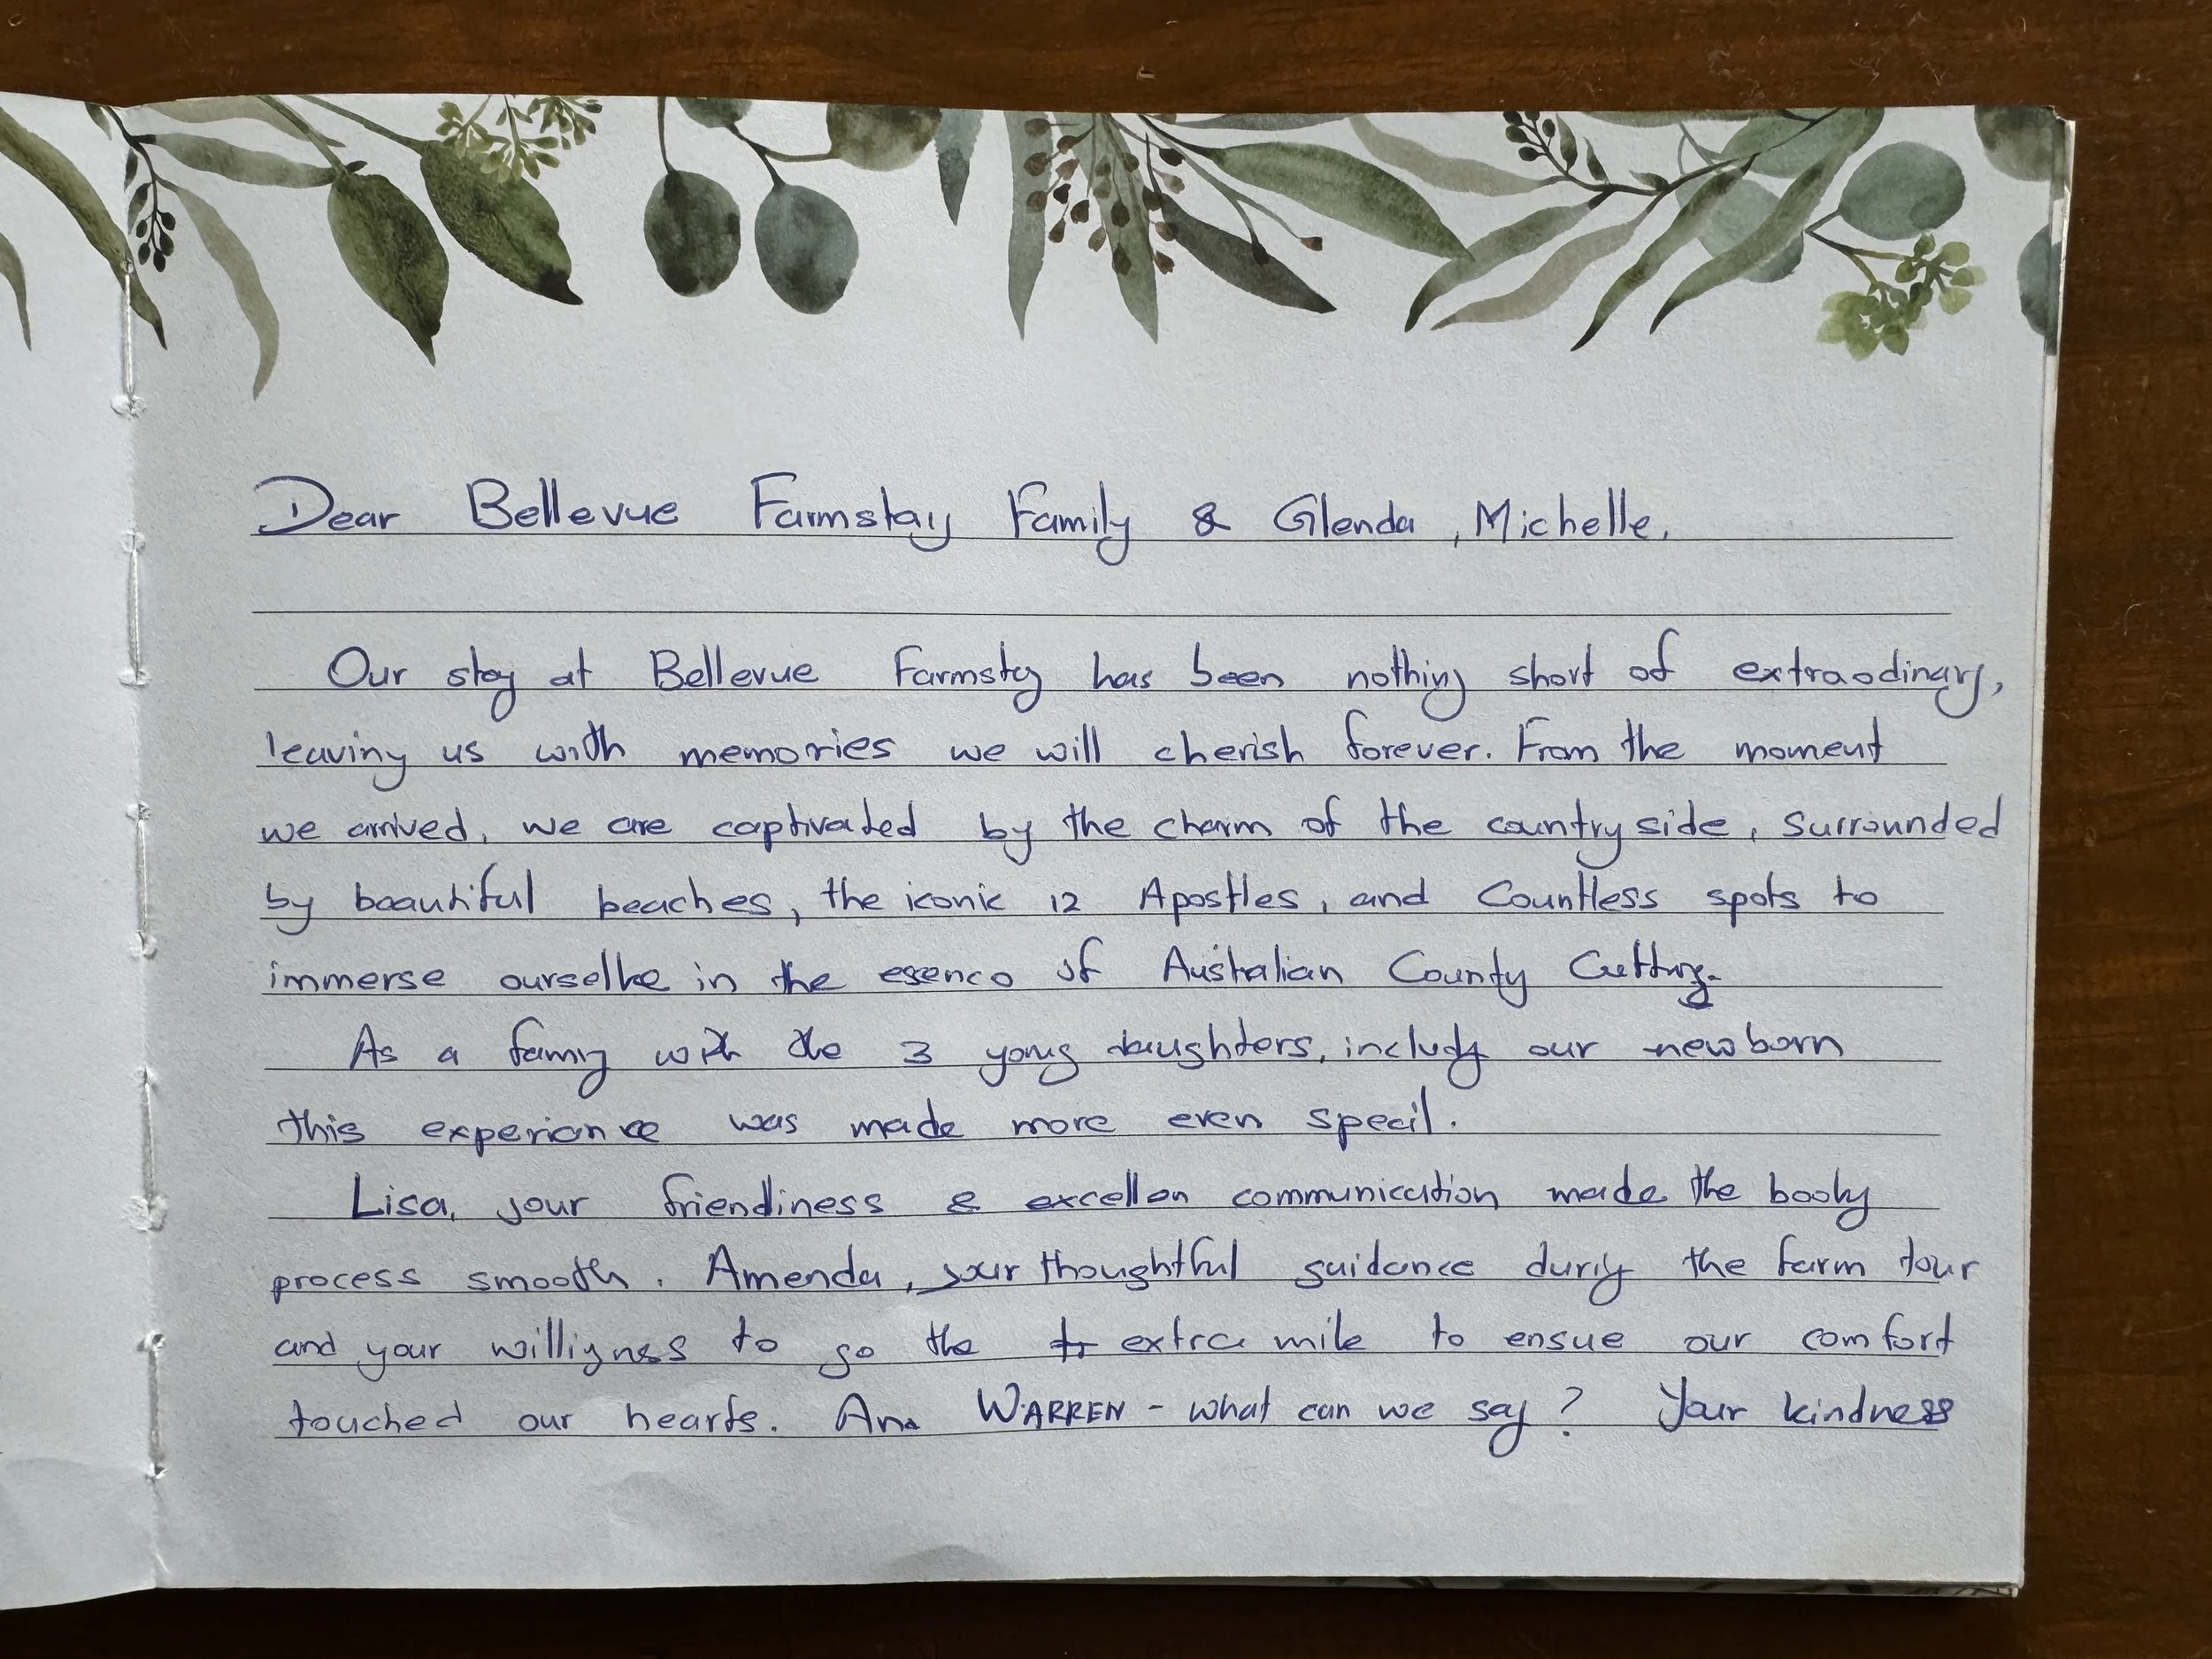 Dear Bellevue Farmstay Family & Glenda, Michelle,
Our stay at Bellevue Farmstay has been nothing short of extraodinary,
leaving us with memories we will cherish forever. From the moment
we arrived, we are captivated by the charm of the countryside, surrounded
by beautiful beaches, the iconic 12 Apostles, and Countless spots to
immerse ourselve in the esence of Australian County
As a family with the 3 young daughters, includy our newborn
this experience was made more even specil.
Lisa, your friendiness & excellen communication made the booky
process smooth. Amenda, your thoughtful guidance duriy the farm tour
and your williyness to go the extra mile to ensue our comfort
touched our hearts. And WARREN - what can we say? Your kindness